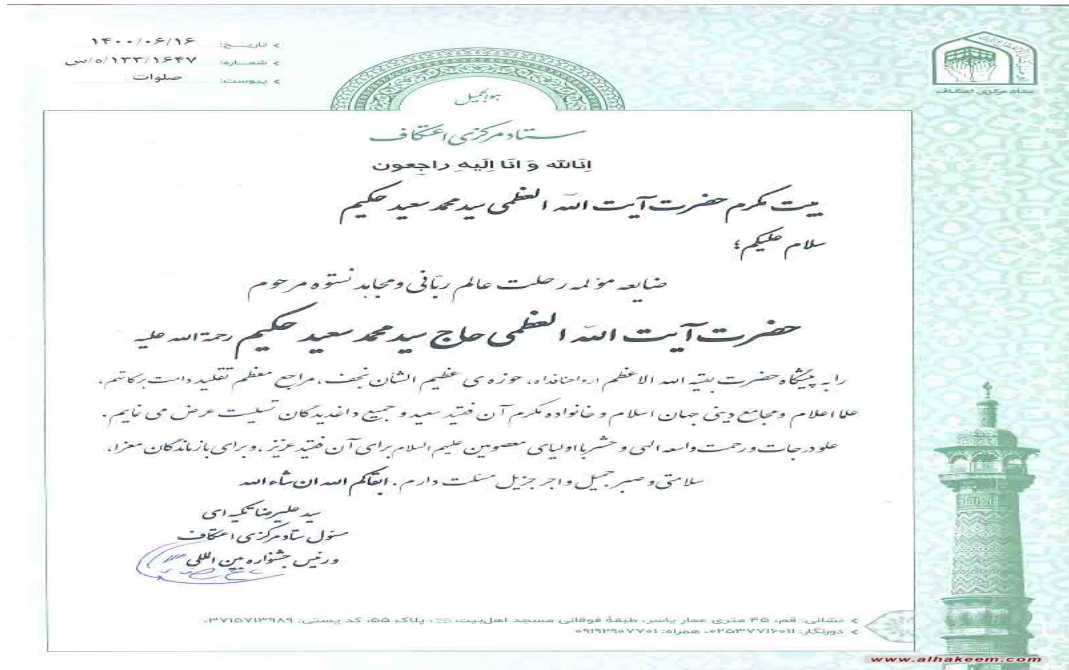 > تاریـــخ: ۱۴۰۰/۰۶/۱۶
> شمــاره: ۱۳۳/۱۶۴۷/ه/س
> پیوست: صلوات
ستاد مرکزی اعتکاف
هوالجمیل
ستاد مرکزی اعتکاف
اِنَالله وَ اِنَا اِلَیهِ راجعون
بیت مکرم حضرت آیت الله العظمی سید محمد سعید حکیم
سلام علیکم؛
ضایعه مؤلمه رحلت عالم ربّانی و مجاهد نستوه مرحوم
حضرت آیت الله العظمی حاج سید محمد سعید حکیم رحمة الله علیه
را به پیشگاه حضرت بقیه الله الاعظم ارواحنافداه، حوزه ی عظیم الشأن نجف، مراجع معظم تقلید دامت برکاتهم،
علما اعلام و مجامع دینی جهان اسلام و خانواده مکرم آن فقید سعید و جمیع داغدیدگان تسلیت عرض می نمایم.
علو درجات و رحمت واسعه الهی و حشر با اولیای معصومین علیهم السلام برای آن فقید عزیز، و برای بازماندگان معزا،
سلامتی و صبر جمیل و اجر جزیل مسئلت دارم. ابقاکم الله ان شاء الله
سید علیرضا تکیه ای
مسئول ستاد مرکزی اعتکاف
و رئیس جشنواره بین المللی
> نشانی: قم، ۴۵ متری عمار یاسر، طبقهٔ فوقانی مسجد اهل‌بیت، پلاک ۵۵، کد پستی: ۳۷۱۵۷۱۳۹۸۹،
> دورنگار: ۰۲۵۳۷۷۱۶۰۱۱، همراه: ۰۹۱۹۲۹۰۷۷۰۱
www.alhakeem.com